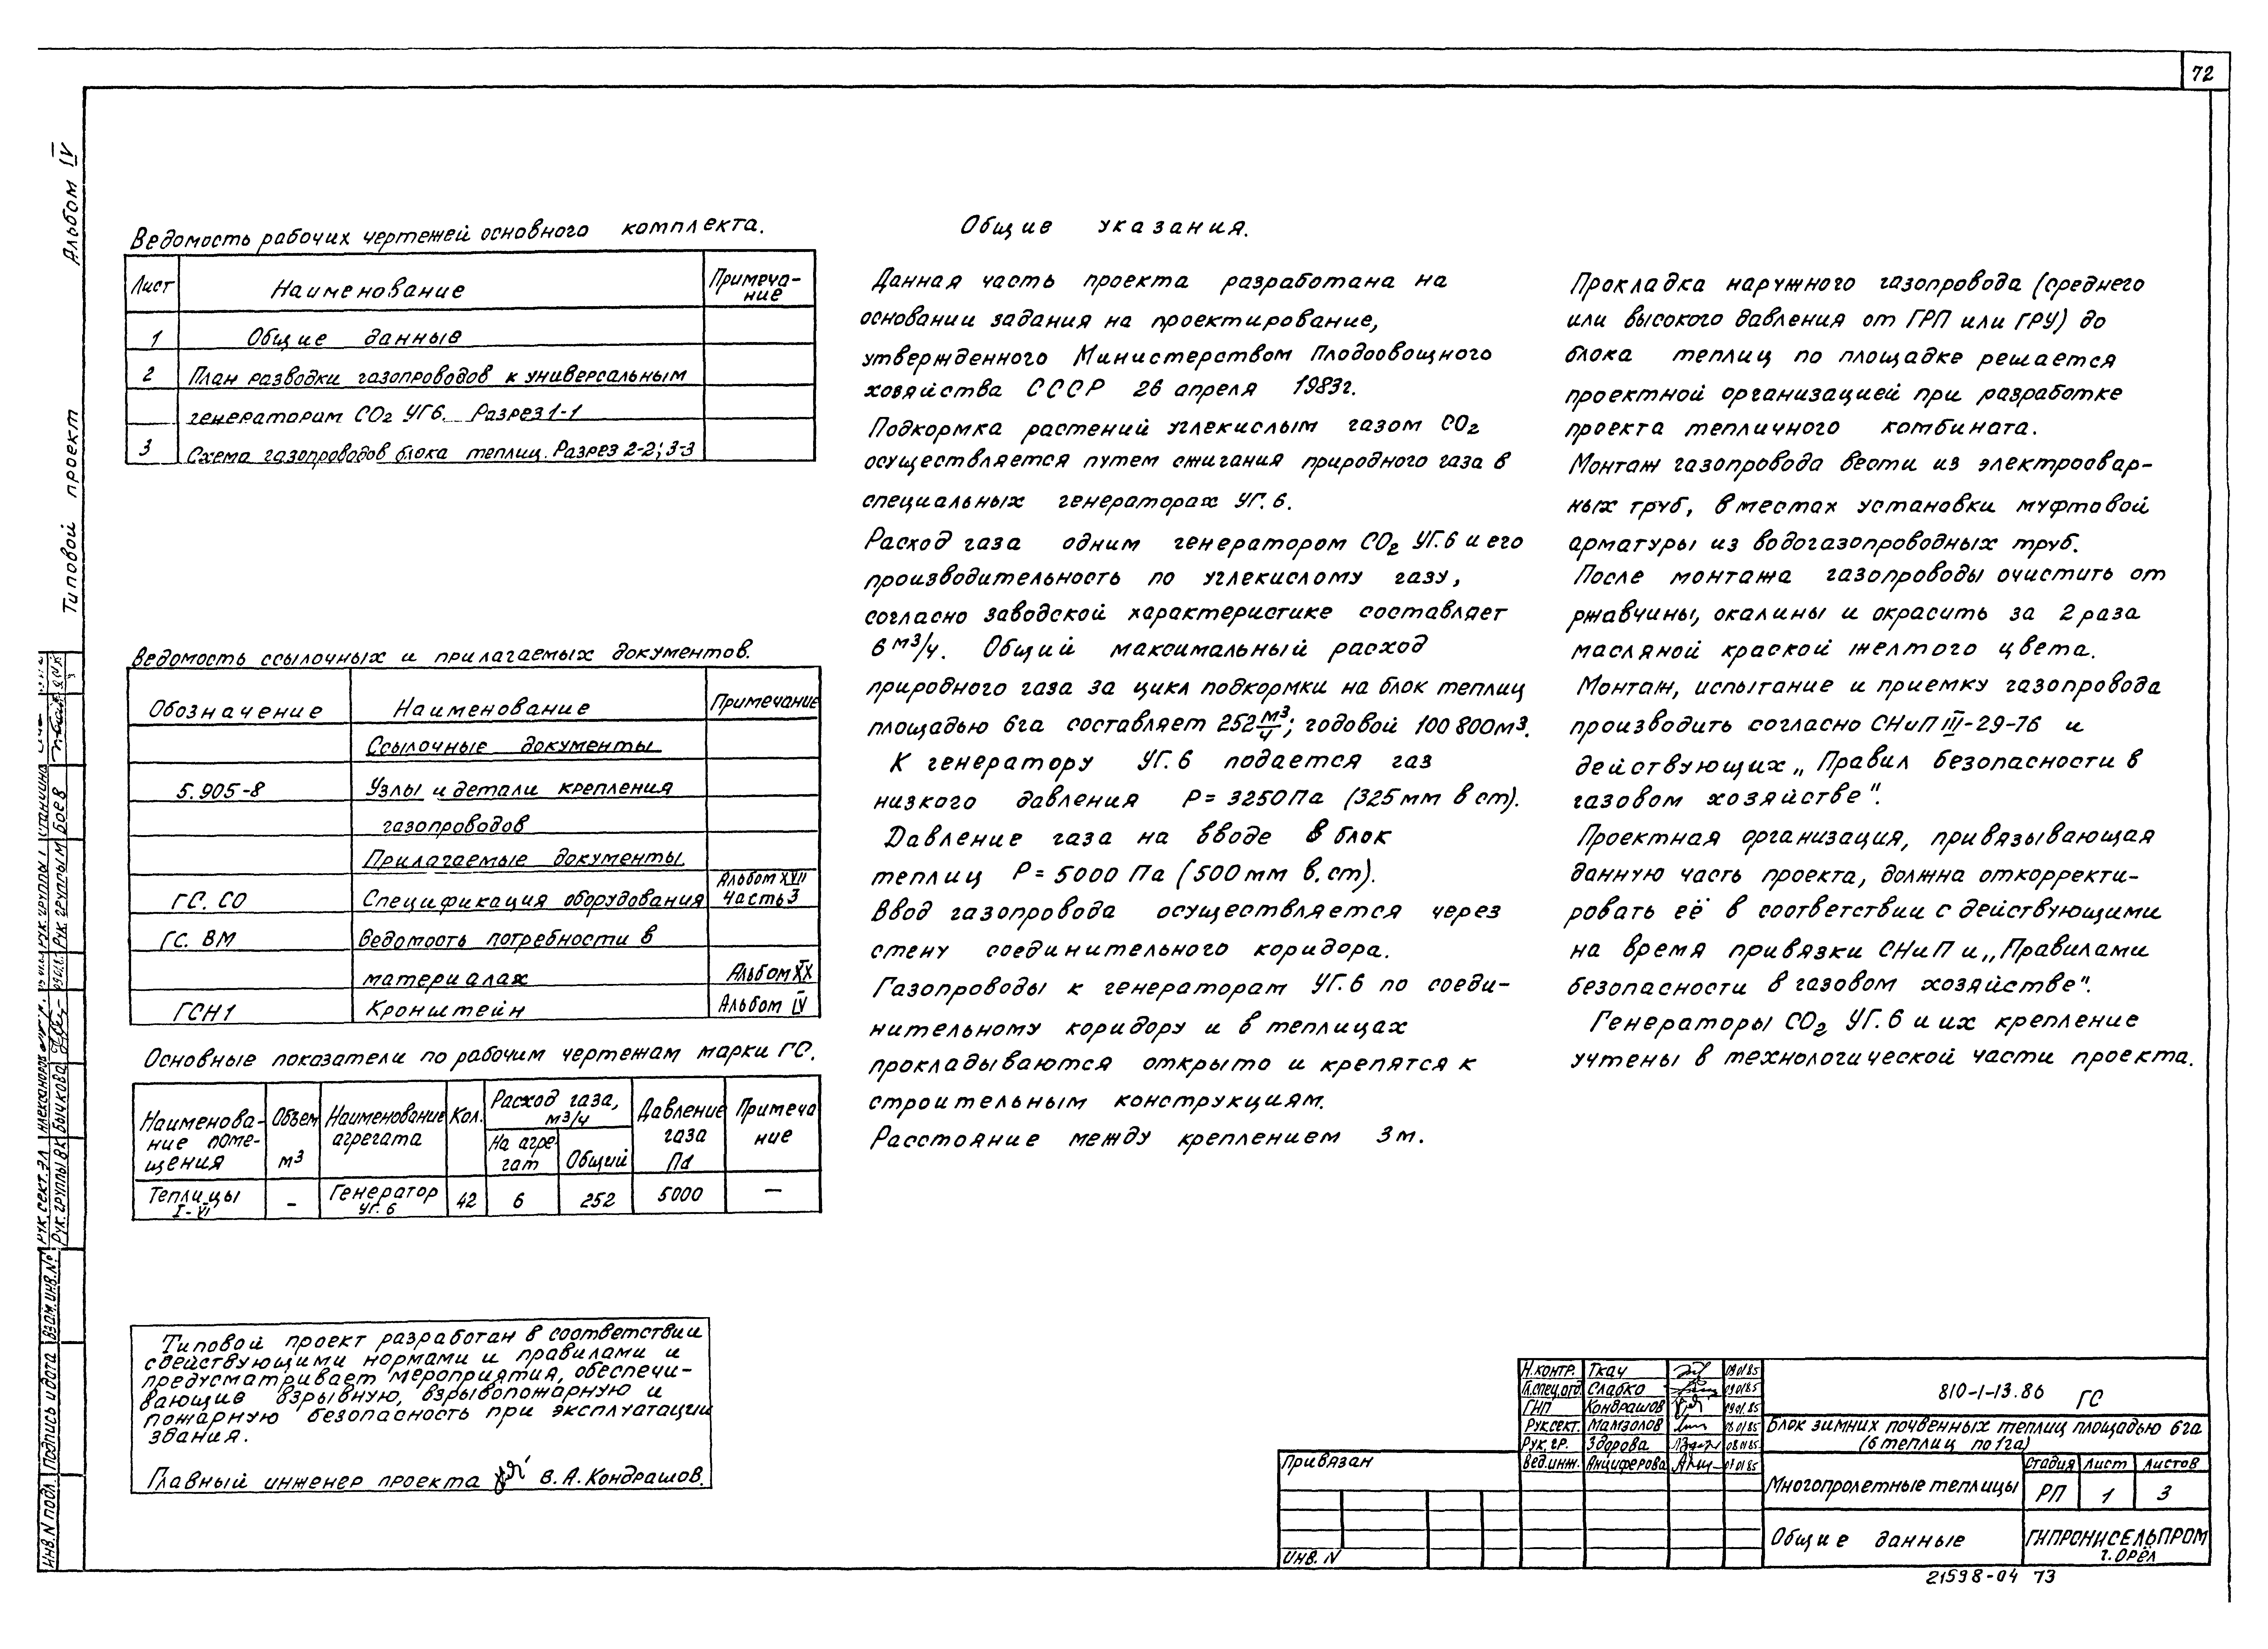 72
Альбом IV
Типовой проект
Ведомость рабочих чертежей основного комплекта.
Лист Наименование Примеча-
ние
1 Общие данные
2 План разводки газопроводов к универсальным
генераторам CO2 УГ6. Разрез 1-1
3 Схема газопроводов блока теплиц. Разрез 2-2; 3-3
Ведомость ссылочных и прилагаемых документов.
Обозначение Наименование Примечание
Ссылочные документы
5.905-8 Узлы и детали крепления
газопроводов
Прилагаемые документы
ГС. СО Спецификация оборудования Альбом XVII Часть 3
ГС. ВМ Ведомость потребности в
материалах Альбом XX
ГСН1 Кронштейн Альбом IV
Основные показатели по рабочим чертежам марки ГС.
Наименова-
ние поме-
щения
Объем
м3
Наименование
агрегата
Кол.
Расход газа,
м3/ч
На агре
гат
Общий
Давление
газа
Па
Примеча
ние
Теплицы
I-VI
– Генератор
УГ. 6
42 6 252 5000 –
Типовой проект разработан в соответствии
с действующими нормами и правилами и
предусматривает мероприятия, обеспечи-
вающие взрывную, взрывопожарную и
пожарную безопасность при эксплуатации
здания.
Главный инженер проекта В. А. Кондрашов.
Общие указания.
Данная часть проекта разработана на
основании задания на проектирование,
утвержденного Министерством Плодоовощного
хозяйства СССР 26 апреля 1983г.
Подкормка растений углекислым газом CO2
осуществляется путем сжигания природного газа в
специальных генераторах УГ. 6.
Расход газа одним генератором CO2 УГ.6 и его
производительность по углекислому газу,
согласно заводской характеристике составляет
6 м3/ч. Общий максимальный расход
природного газа за цикл подкормки на блок теплиц
площадью 6га составляет 252 м3/ч; годовой 100 800м3.
К генератору УГ. 6 подается газ
низкого давления Р= 3250Па (325мм в ст).
Давление газа на вводе в блок
теплиц Р= 5000 Па (500мм в. ст).
Ввод газопровода осуществляется через
стену соединительного коридора.
Газопроводы к генераторам УГ. 6 по соеди-
нительному коридору и в теплицах
прокладываются открыто и крепятся к
строительным конструкциям.
Расстояние между креплением 3м.
Прокладка наружного газопровода (среднего
или высокого давления от ГРП или ГРУ) до
блока теплиц по площадке решается
проектной организацией при разработке
проекта тепличного комбината.
Монтаж газопровода вести из электросвар-
ных труб, в местах установки муфтовой
арматуры из водогазопроводных труб.
После монтажа газопроводы очистить от
ржавчины, окалины и окрасить за 2 раза
масляной краской желтого цвета.
Монтаж, испытание и приемку газопровода
производить согласно СНиП III-29-76 и
действующих „Правил безопасности в
газовом хозяйстве".
Проектная организация, привязывающая
данную часть проекта, должна откорректи-
ровать её в соответствии с действующими
на время привязки СНиП и „Правилами
безопасности в газовом хозяйстве".
Генераторы CO2 УГ. 6 и их крепление
учтены в технологической части проекта.
Н.контр. Ткач 09.01.85
Гл.спец.отд Слабко 09.01.85
ГИП Кондрашов 09.01.85
Рук.сект. Мамзолов 08.01.85
Рук. гр. Здорова 08.01.85
Вед.инж. Анциферова 07.01.85
Привязан
Инв. N
810-1-13.86 ГС
Блок зимних почвенных теплиц площадью 6га
(6 теплиц по 1га)
Многопролетные теплицы
Стадия Лист Листов
РП 1 3
Общие данные
ГИПРОНИСЕЛЬПРОМ
г. Орёл
21598-04 73
Рук. сект. ЭЛ Александров
Рук. группы ВК Бычкова
Рук группы Боев
Инв. N подл. Подпись и дата Взам. инв. N